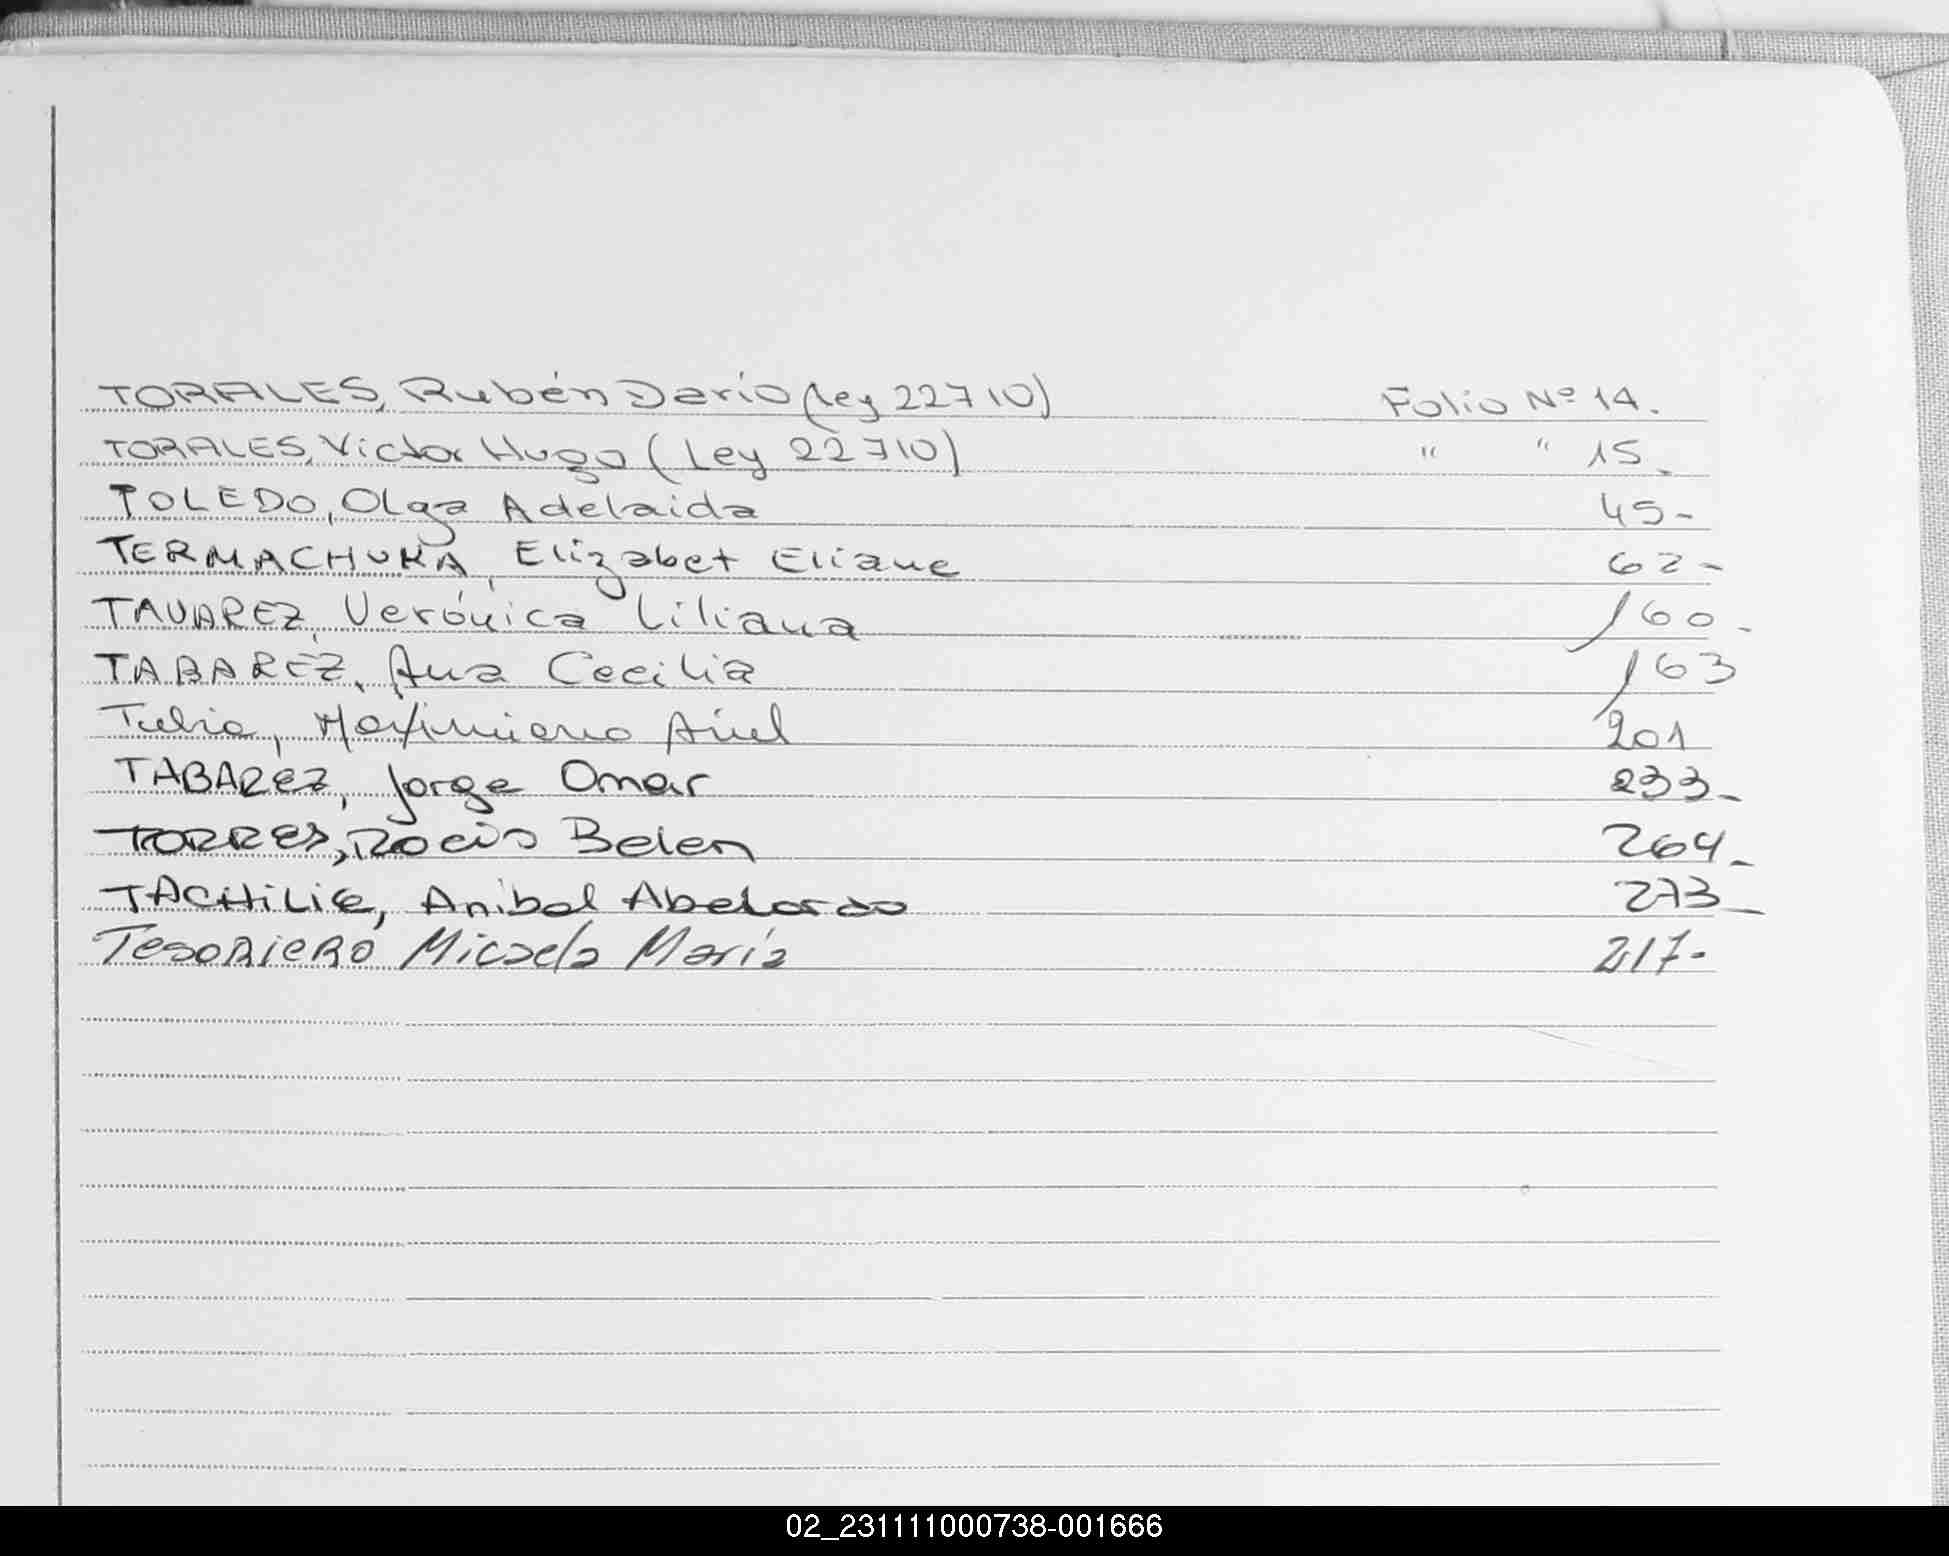 TORALES, Rubén Darío (Ley 22710) Folio Nº 14.
TORALES, Víctor Hugo (Ley 22710) " " 15.
TOLEDO, Olga Adelaida 45-
TERMACHUKA, Elizabet Eliane 62-
TAVAREZ, Verónica Liliana 160-
TABAREZ, Ana Cecilia 163
Tubio, Maximiano Ariel 201
TABAREZ, Jorge Omar 233-
TORRES, Rocio Belen 264-
TACHILIE, Anibal Abelardo 273-
TESORIERO Micaela María 217-
02_231111000738-001666